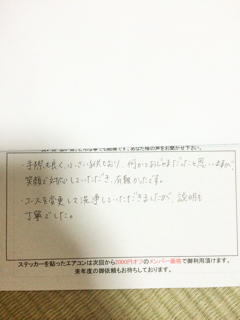 ・手際も良く、小さい子供がおり、何かとおじゃまだったと思いますが、
笑顔で対応していただき、有難かったです。
・コースを変更して洗浄していただきましたが、説明も
丁寧でした。
ステッカーを貼ったエアコンは次回から2000円オフのメンバー価格で御利用頂けます。
来年度の御依頼もお待ちしております。